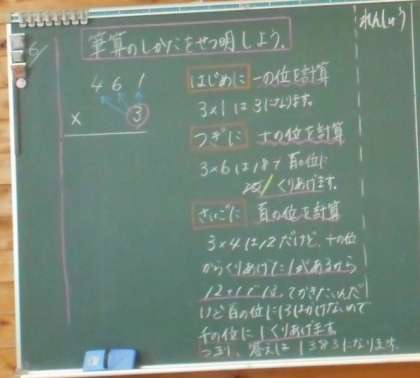 れんしゅう
筆算のしかたをせつ明しよう。
6/
461
×3
はじめに 一の位を計算
3×1は3になります。
つぎに 十の位を計算
3×6は18で百の位に
くりあげます。
さいごに 百の位を計算
3×4は12だけど、十の位
からくりあげた1があるから
12+1で13。
けど百の位に13はかけないので
千の位に1くりあげます。
つまり、答えは1383になります。